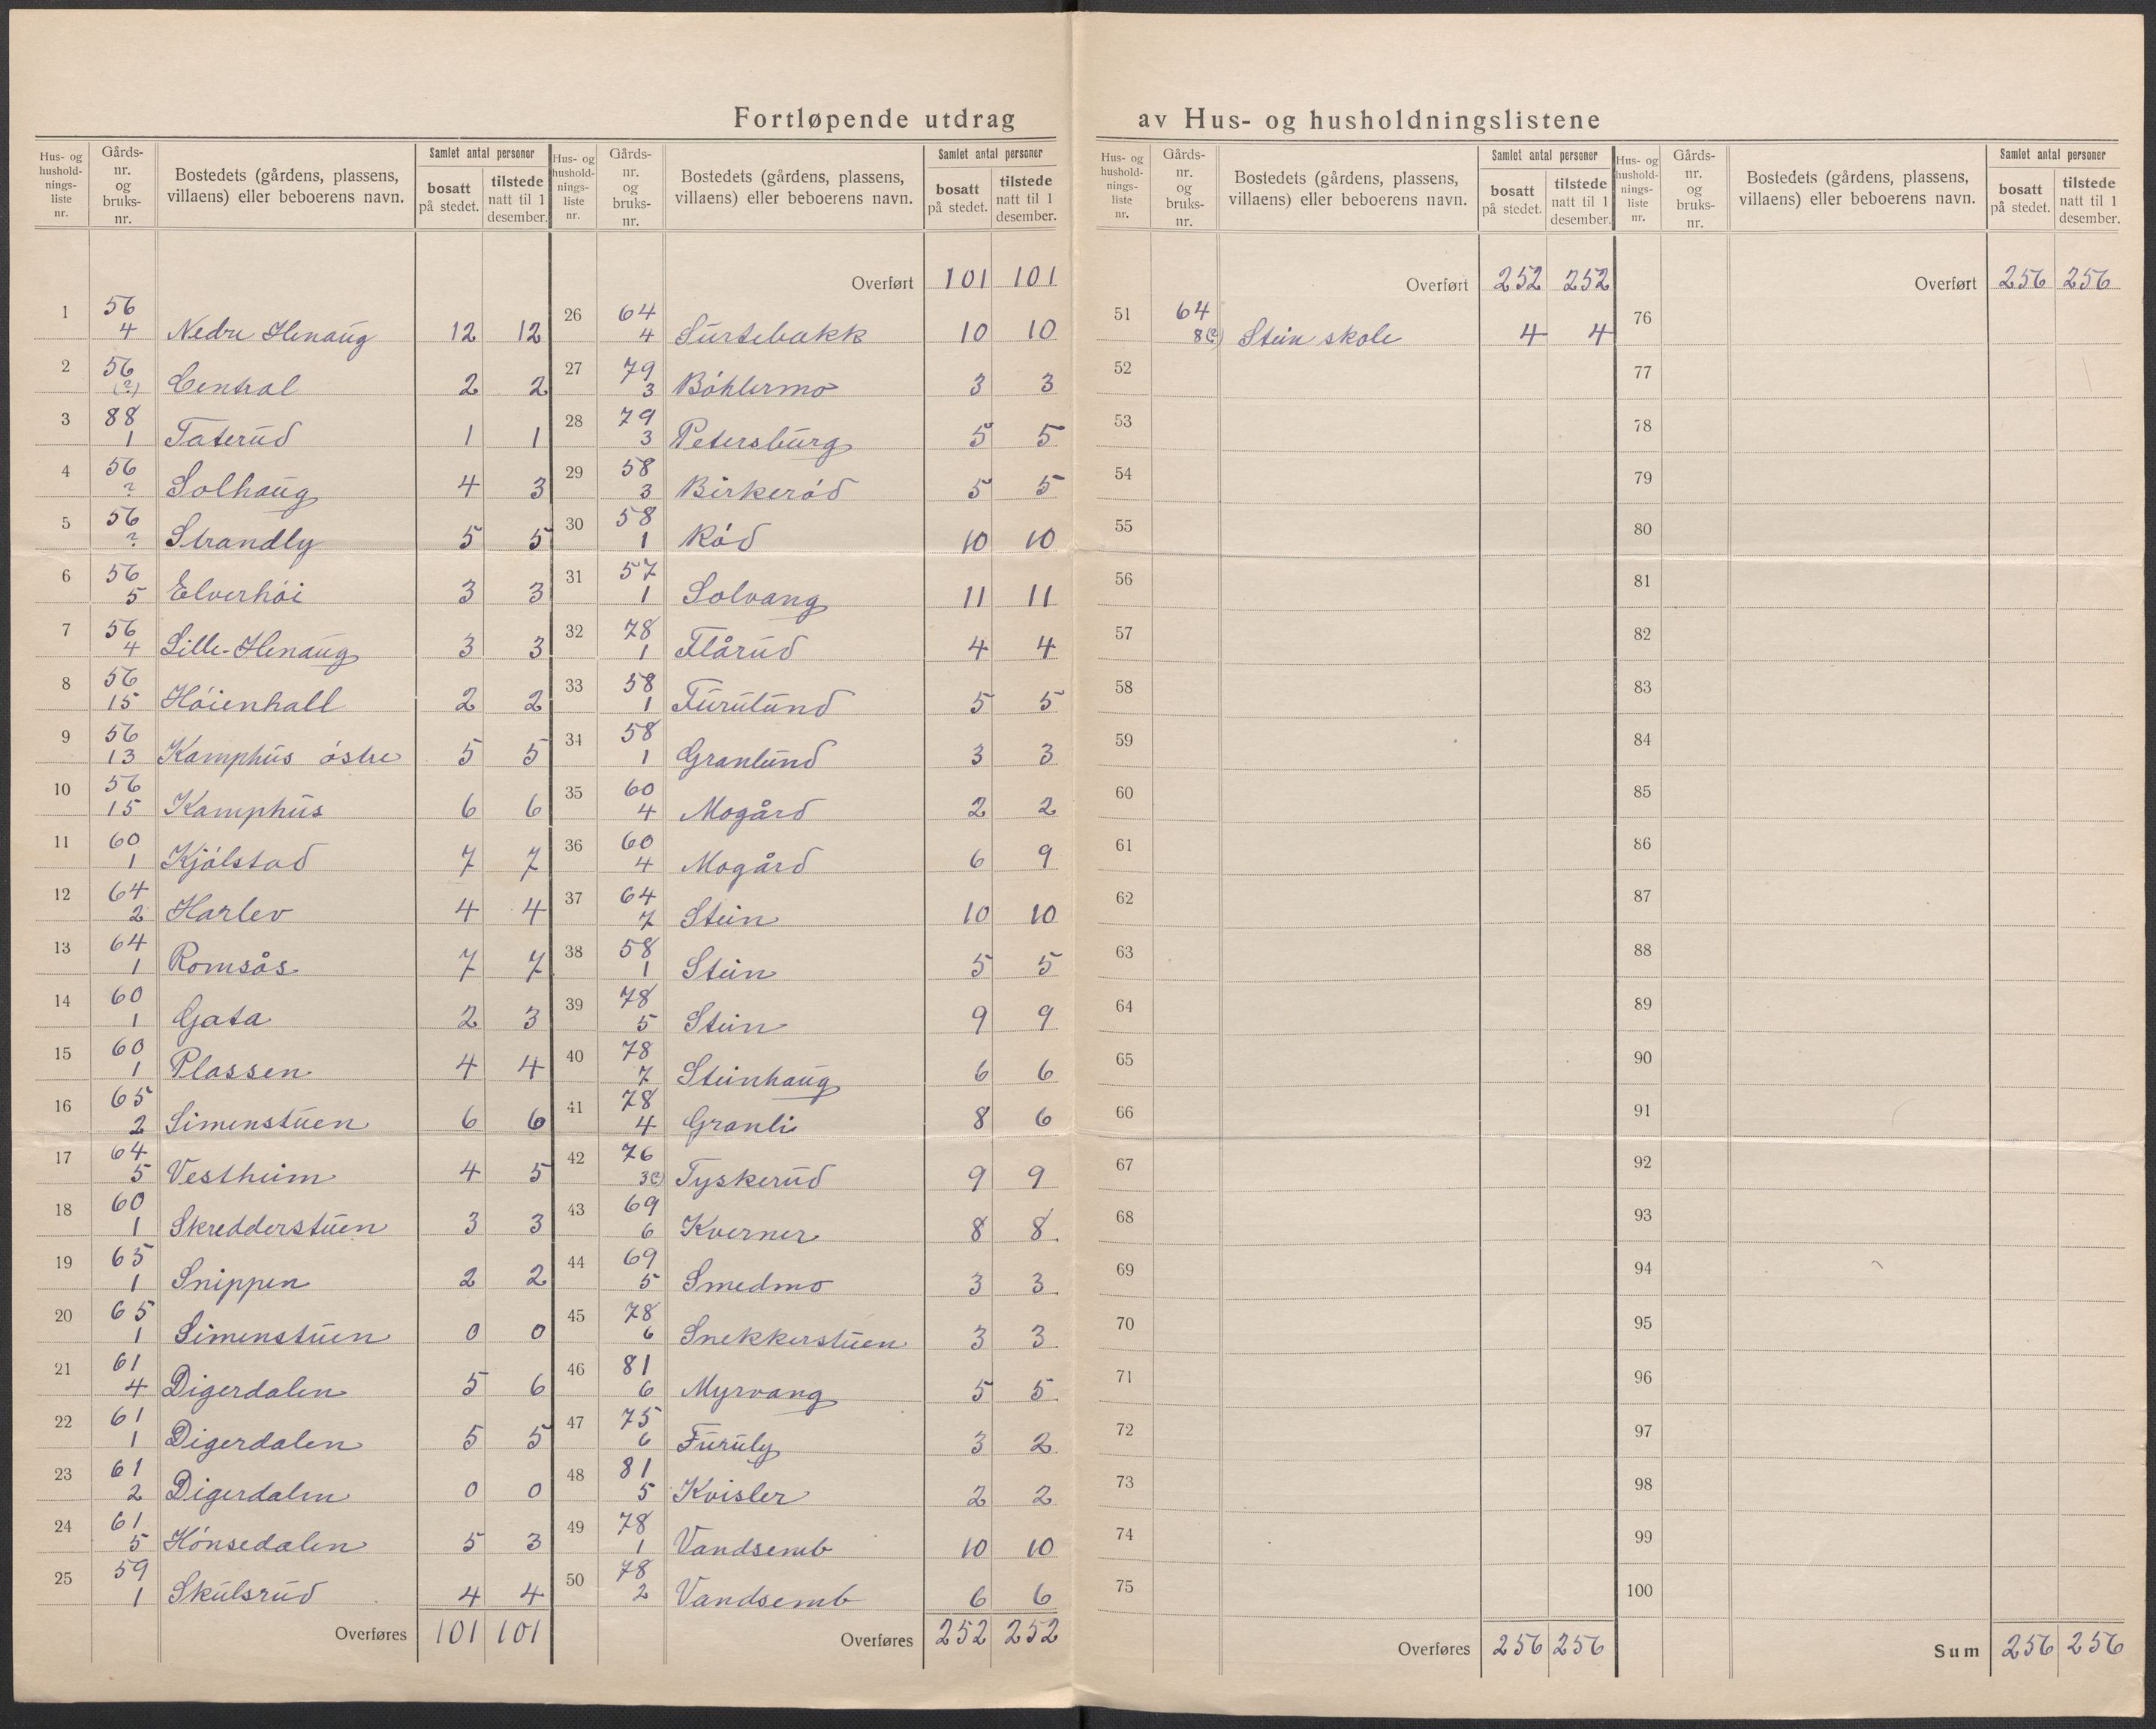 Fortløpende utdrag av Hus- og husholdningslistene
Hus- og husholdnings-liste nr. | Gårds-nr. og bruks-nr. | Bostedets (gårdens, plassens, villaens) eller beboerens navn. | Samlet antal personer: bosatt på stedet. | tilstede natt til 1 desember.
1 | 56 4 | Nedre Henaug | 12 | 12
2 | 56 (?) | Central | 2 | 2
3 | 88 1 | Taterud | 1 | 1
4 | 56 ? | Solhaug | 4 | 3
5 | 56 ? | Strandly | 5 | 5
6 | 56 5 | Elverhöi | 3 | 3
7 | 56 4 | Lille-Henaug | 3 | 3
8 | 56 15 | Höienhall | 2 | 2
9 | 56 13 | Kamphus östre | 5 | 5
10 | 56 15 | Kamphus | 6 | 6
11 | 60 1 | Kjölstad | 7 | 7
12 | 64 2 | Harlev | 4 | 4
13 | 64 1 | Romsås | 7 | 7
14 | 60 1 | Gata | 2 | 3
15 | 60 1 | Plassen | 4 | 4
16 | 65 2 | Simenstuen | 6 | 6
17 | 64 5 | Vestheim | 4 | 5
18 | 60 1 | Skredderstuen | 3 | 3
19 | 65 1 | Snippen | 2 | 2
20 | 65 1 | Simenstuen | 0 | 0
21 | 61 4 | Digerdalen | 5 | 6
22 | 61 1 | Digerdalen | 5 | 5
23 | 61 2 | Digerdalen | 0 | 0
24 | 61 5 | Hönsedalen | 5 | 3
25 | 59 1 | Skulsrud | 4 | 4
Overføres | 101 | 101
Hus- og husholdnings-liste nr. | Gårds-nr. og bruks-nr. | Bostedets (gårdens, plassens, villaens) eller beboerens navn. | Samlet antal personer: bosatt på stedet. | tilstede natt til 1 desember.
Overført | 101 | 101
26 | 64 4 | Surtebakk | 10 | 10
27 | 79 3 | Böhlermo | 3 | 3
28 | 79 3 | Petersburg | 5 | 5
29 | 58 3 | Birkeröd | 5 | 5
30 | 58 1 | Röd | 10 | 10
31 | 57 1 | Solvang | 11 | 11
32 | 78 1 | Flårud | 4 | 4
33 | 58 1 | Furulund | 5 | 5
34 | 58 1 | Granlund | 3 | 3
35 | 60 4 | Mogård | 2 | 2
36 | 60 4 | Mogård | 6 | 9
37 | 64 7 | Stein | 10 | 10
38 | 58 1 | Stein | 5 | 5
39 | 78 5 | Stein | 9 | 9
40 | 78 7 | Steinhaug | 6 | 6
41 | 78 4 | Granli | 8 | 6
42 | 76 3(?) | Tyskerud | 9 | 9
43 | 69 6 | Kverner | 8 | 8
44 | 69 5 | Smedmo | 3 | 3
45 | 78 6 | Snekkerstuen | 3 | 3
46 | 81 6 | Myrvang | 5 | 5
47 | 75 6 | Furuly | 3 | 2
48 | 81 5 | Kvisler | 2 | 2
49 | 78 1 | Vandsemb | 10 | 10
50 | 78 2 | Vandsemb | 6 | 6
Overføres | 252 | 252
Hus- og husholdnings-liste nr. | Gårds-nr. og bruks-nr. | Bostedets (gårdens, plassens, villaens) eller beboerens navn. | Samlet antal personer: bosatt på stedet. | tilstede natt til 1 desember.
Overført | 252 | 252
51 | 64 8(?) | Stein skole | 4 | 4
52
53
54
55
56
57
58
59
60
61
62
63
64
65
66
67
68
69
70
71
72
73
74
75
Overføres | 256 | 256
Hus- og husholdnings-liste nr. | Gårds-nr. og bruks-nr. | Bostedets (gårdens, plassens, villaens) eller beboerens navn. | Samlet antal personer: bosatt på stedet. | tilstede natt til 1 desember.
Overført | 256 | 256
76
77
78
79
80
81
82
83
84
85
86
87
88
89
90
91
92
93
94
95
96
97
98
99
100
Sum | 256 | 256